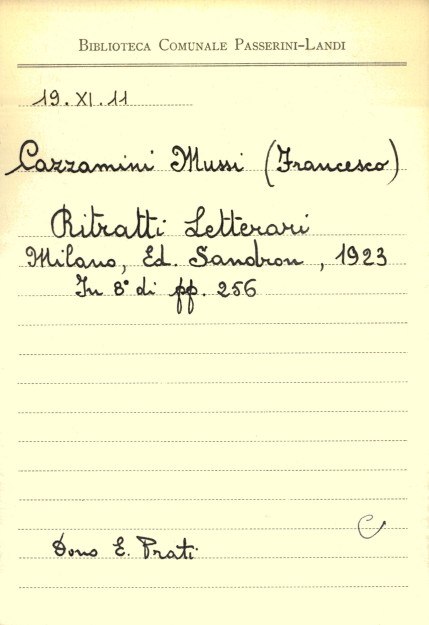 BIBLIOTECA COMUNALE PASSERINI-LANDI
19.XI.11
Cazzamini Mussi (Francesco)
Ritratti Letterari
Milano, Ed. Sandron, 1923
In 8° di pp. 256
C
Dono E. Prati